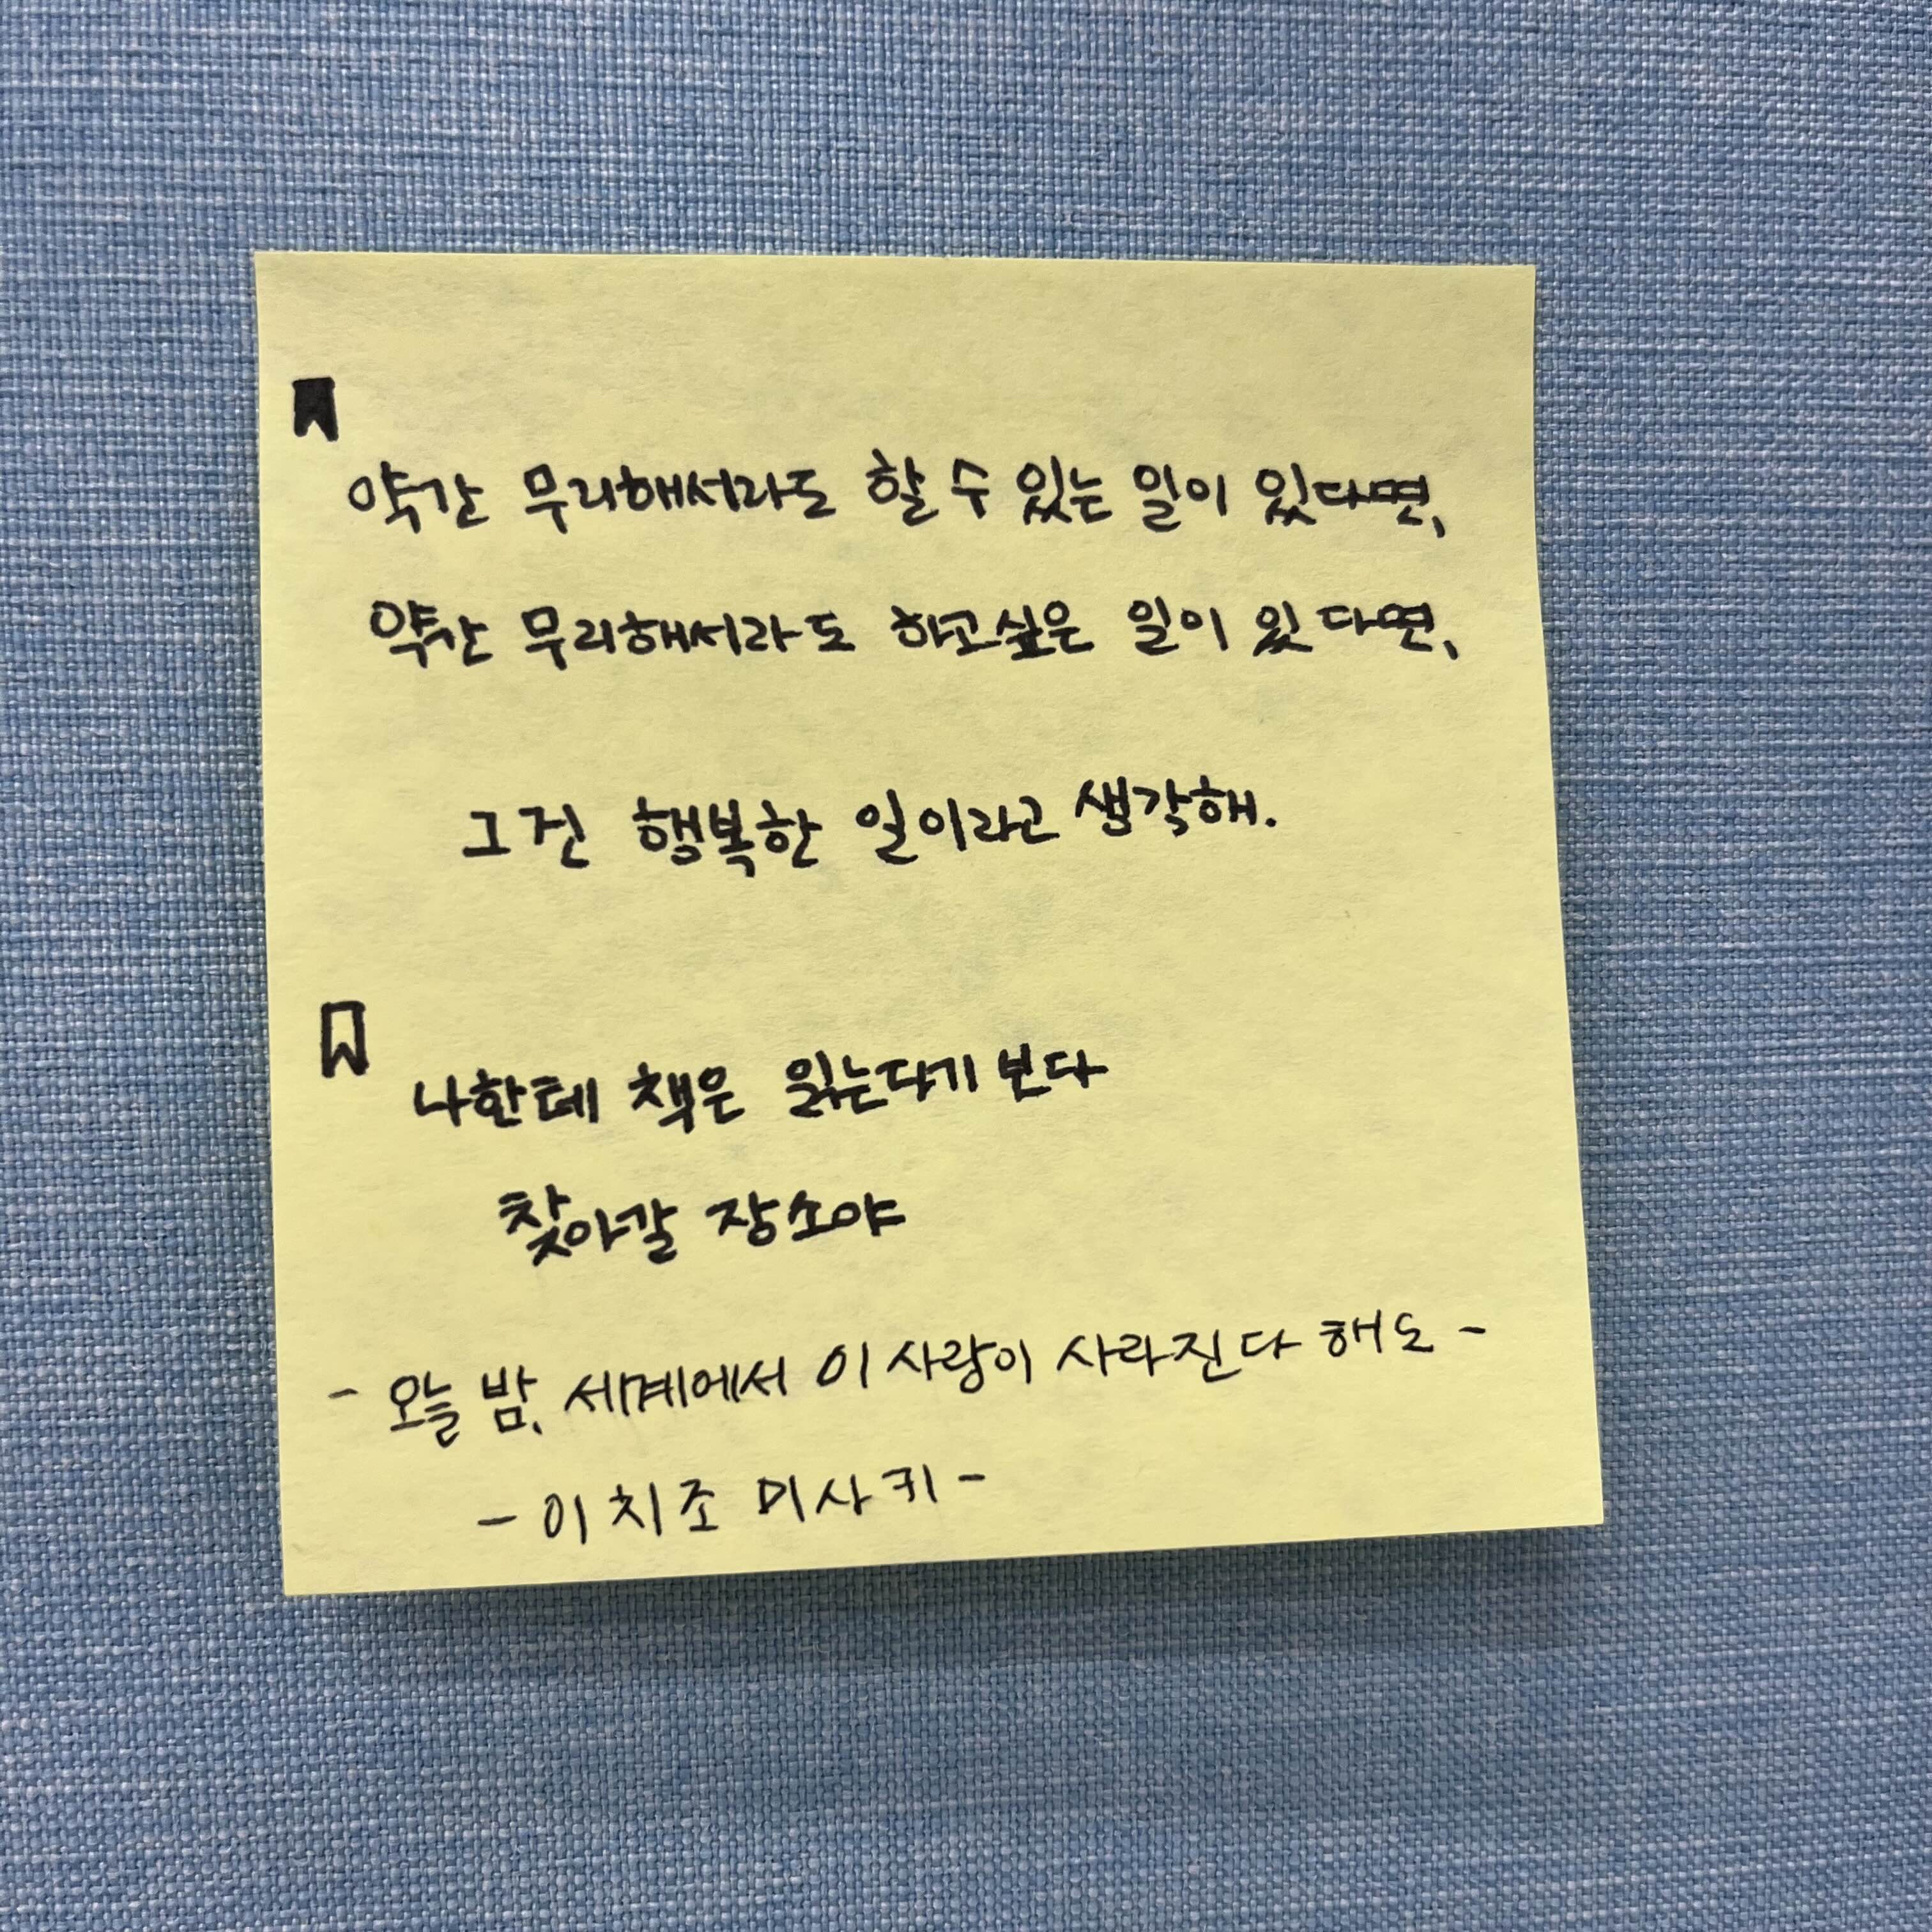 약간 무리해서라도 할 수 있는 일이 있다면,
약간 무리해서라도 하고싶은 일이 있다면,
그건 행복한 일이라고 생각해.
나한테 책은 읽는다기 보다
찾아갈 장소야
- 오늘 밤, 세계에서 이 사랑이 사라진다 해도 -
- 이치조 미사키 -